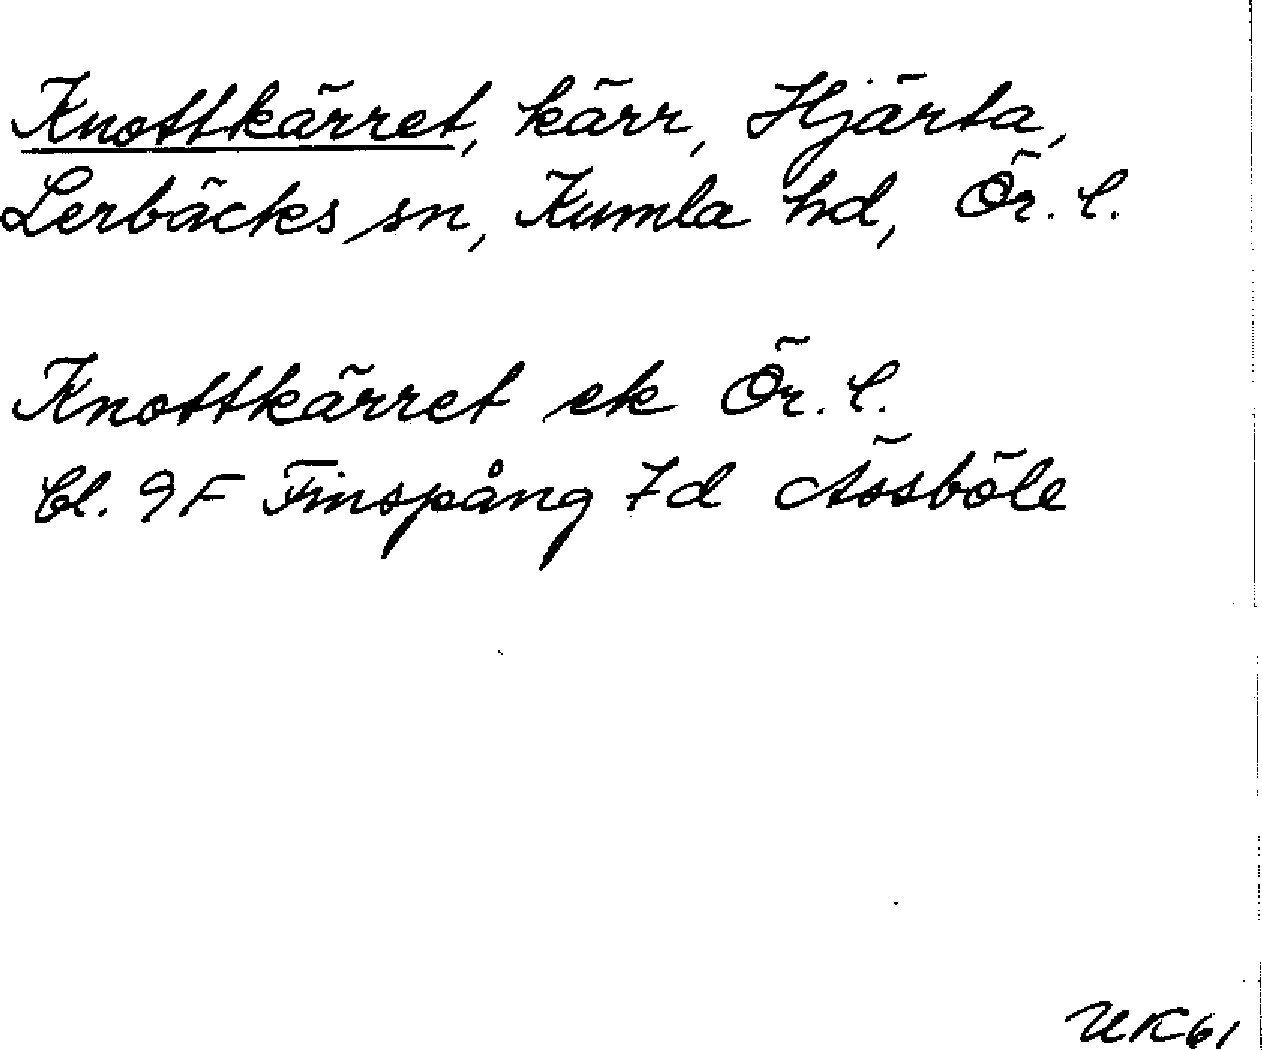 Knottkärret, kärr, Hjärta,
Lerbäcks sn, Kumla hd, Ör. l.
Knottkärret ek Ör. l.
bl. 9F Finspång 7d Åsböle
UK61